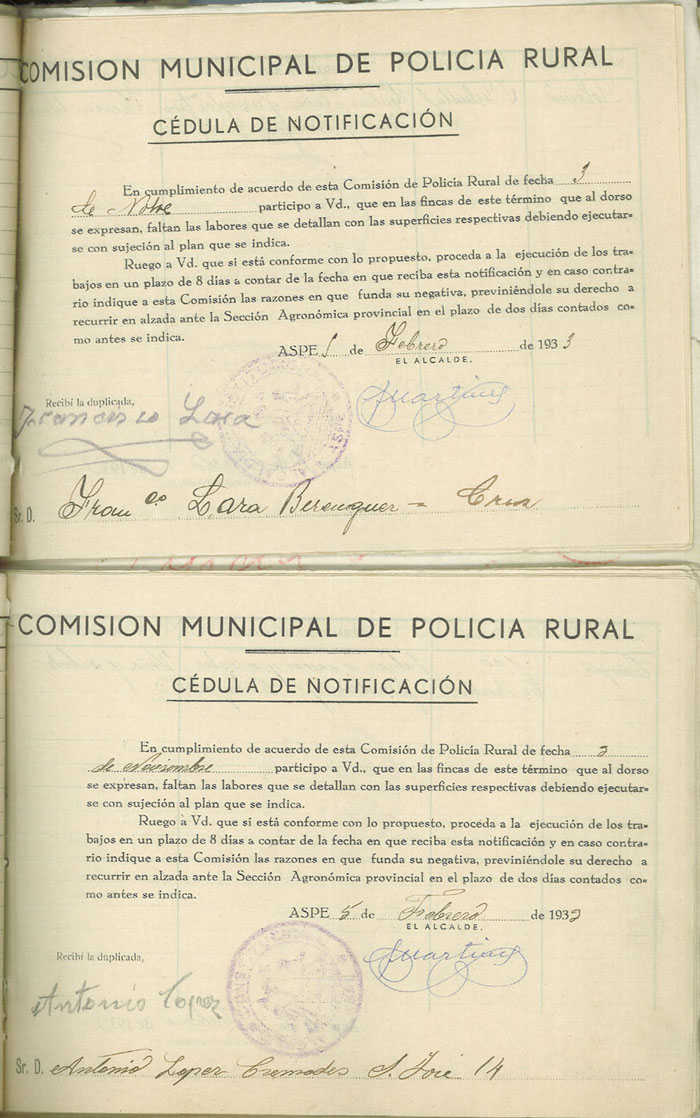 COMISION MUNICIPAL DE POLICIA RURAL
CÉDULA DE NOTIFICACIÓN
En cumplimiento de acuerdo de esta Comisión de Policía Rural de fecha 3
de Nbre participo a Vd., que en las fincas de este término que al dorso
se expresan, faltan las labores que se detallan con las superficies respectivas debiendo ejecutar=
se con sujeción al plan que se indica.
Ruego a Vd. que si está conforme con lo propuesto, proceda a la ejecución de los tra=
bajos en un plazo de 8 días a contar de la fecha en que reciba esta notificación y en caso contra=
rio indique a esta Comisión las razones en que funda su negativa, previniéndole su derecho a
recurrir en alzada ante la Sección Agronómica provincial en el plazo de dos días contados co=
mo antes se indica.
ASPE 5 de Febrero de 1933
EL ALCALDE,
Recibí la duplicada,
Francisco Lara
Martínez
Sr. D. Franco Lara Berenguer = Cruz
COMISION MUNICIPAL DE POLICIA RURAL
CÉDULA DE NOTIFICACIÓN
En cumplimiento de acuerdo de esta Comisión de Policía Rural de fecha 3
de Noviembre participo a Vd., que en las fincas de este término que al dorso
se expresan, faltan las labores que se detallan con las superficies respectivas debiendo ejecutar=
se con sujeción al plan que se indica.
Ruego a Vd. que si está conforme con lo propuesto, proceda a la ejecución de los tra=
bajos en un plazo de 8 días a contar de la fecha en que reciba esta notificación y en caso contra=
rio indique a esta Comisión las razones en que funda su negativa, previniéndole su derecho a
recurrir en alzada ante la Sección Agronómica provincial en el plazo de dos días contados co=
mo antes se indica.
ASPE 5 de Febrero de 1933
EL ALCALDE,
Recibí la duplicada,
Martínez
Antonio Lopez
Sr. D. Antonio Lopez Cremades S. José 14